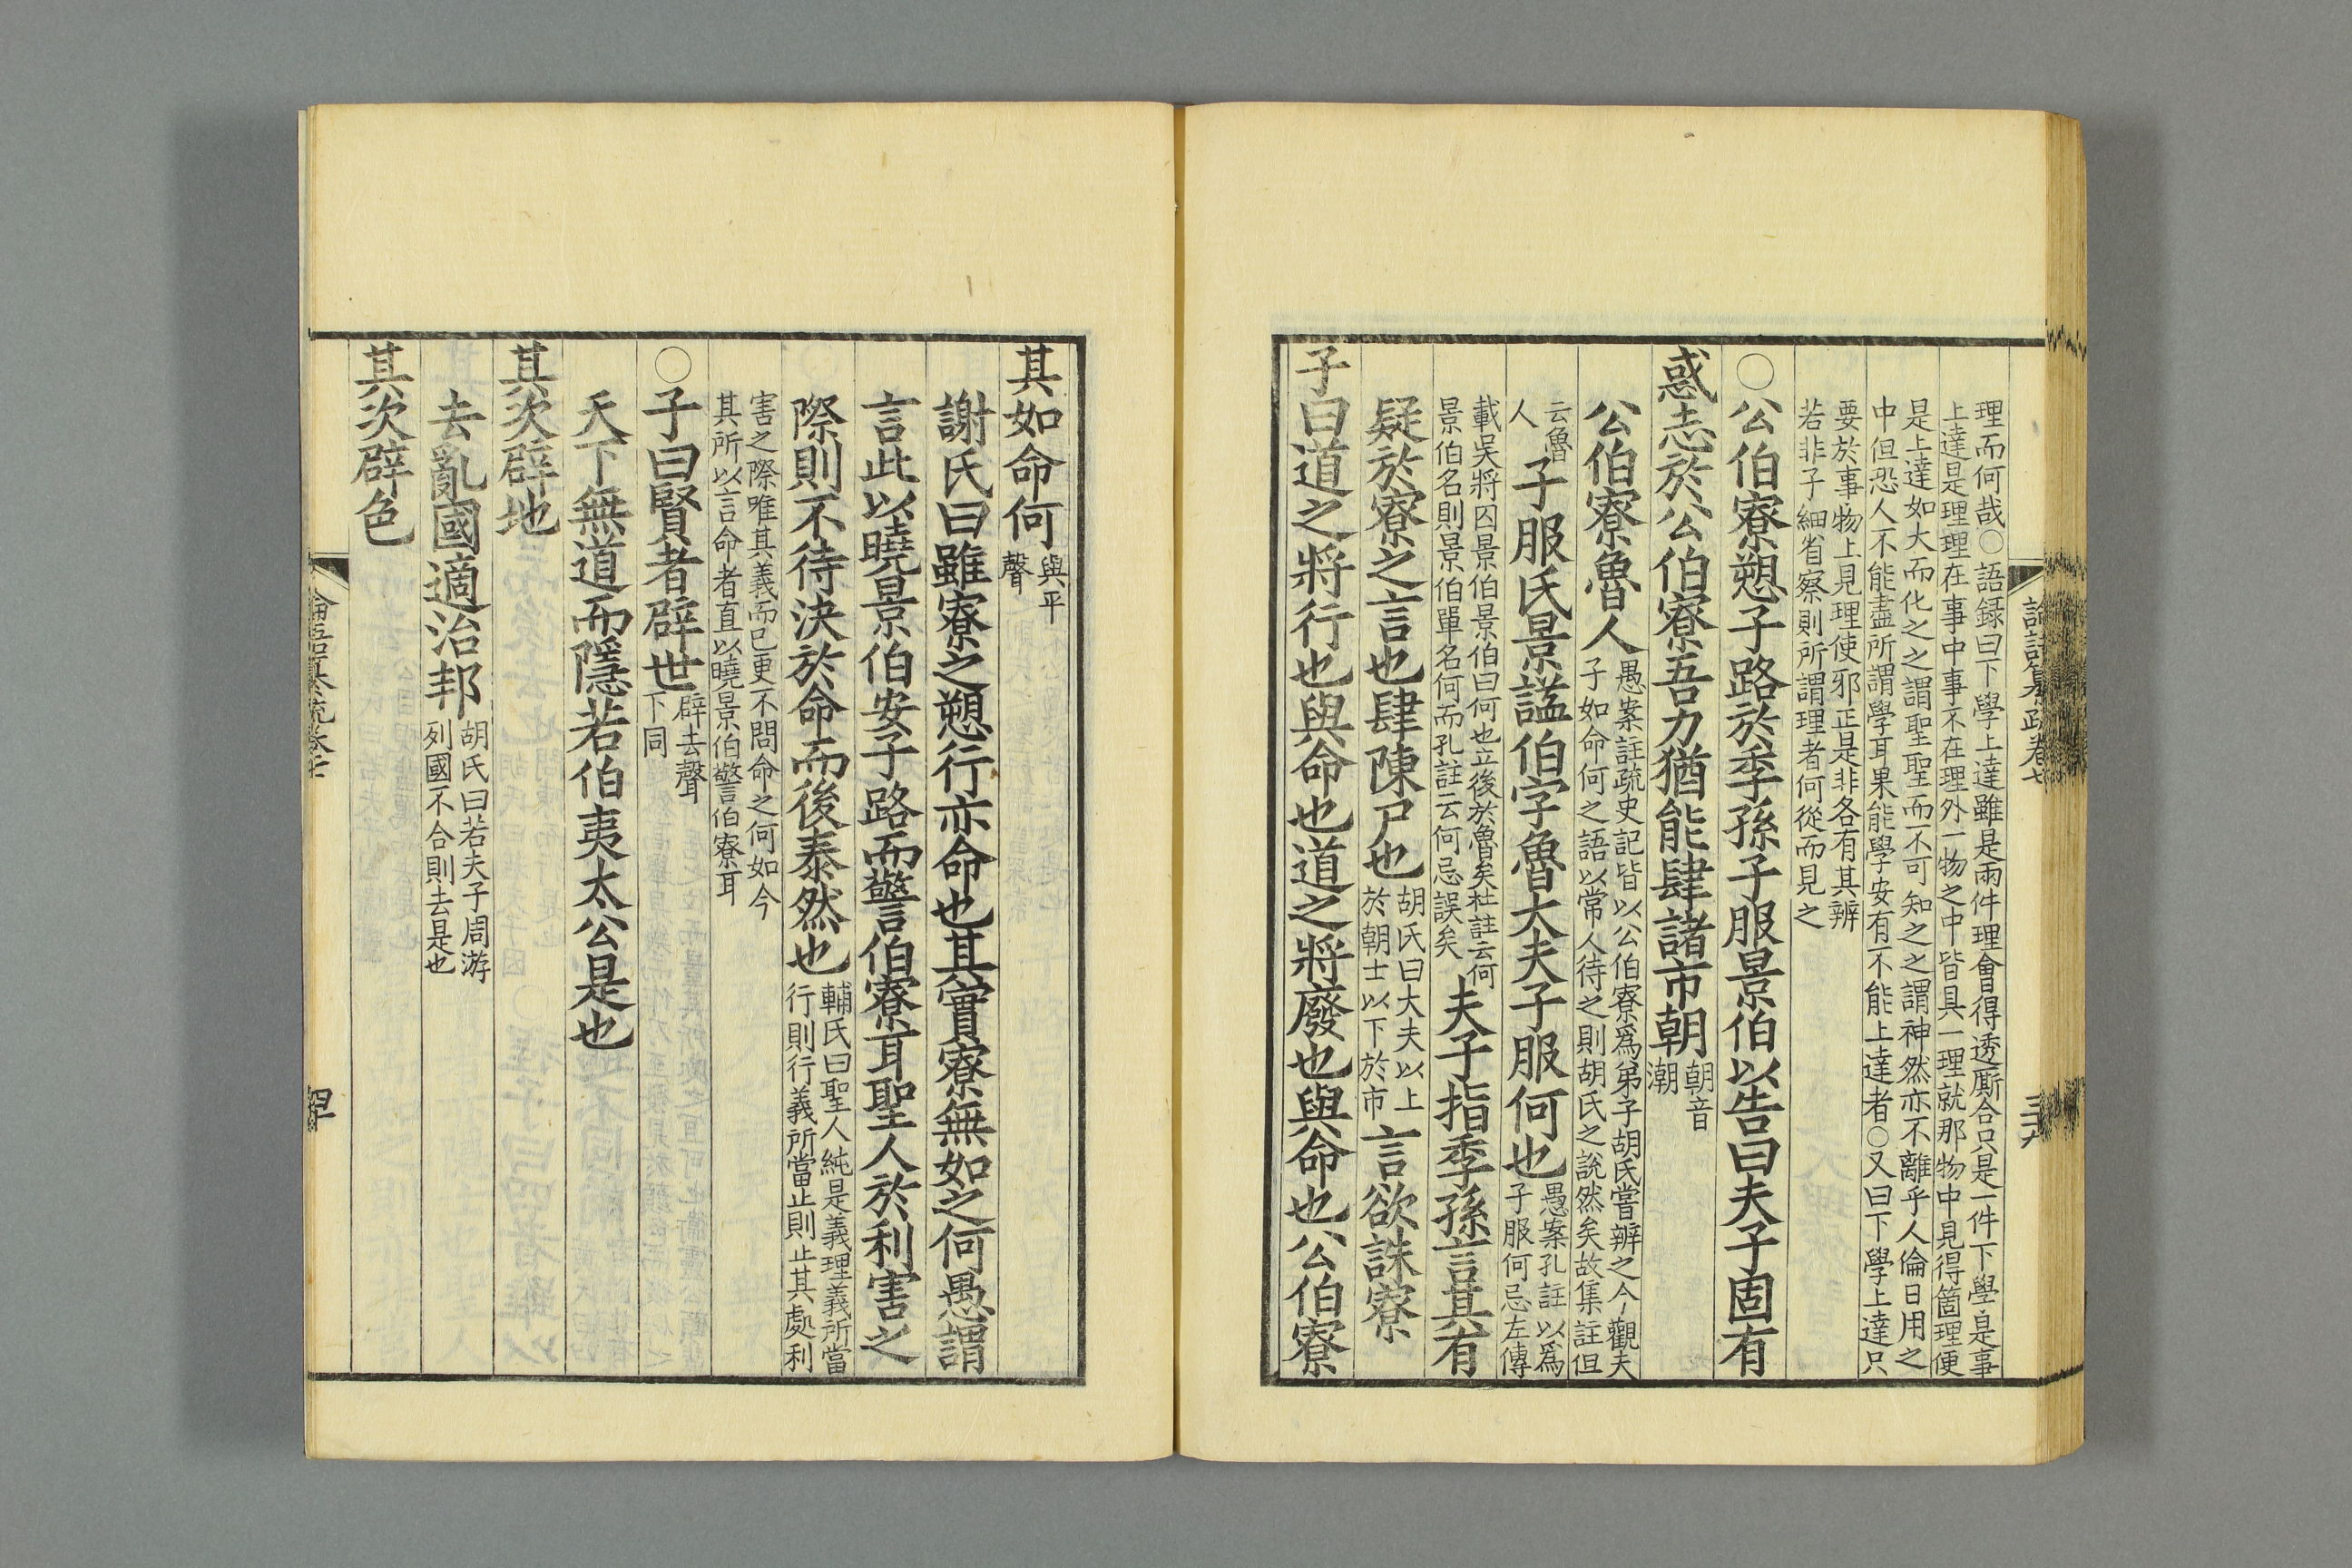 理而何哉○語録曰下學上達雖是兩件理會得透廝合只是一件下學是事
上達是理理在事中事不在理外一物之中皆具一理就那物中見得箇理便
是上達如大而化之之謂聖聖而不可知之之謂神然亦不離乎人倫日用之
中但恐人不能盡所謂學耳果能學安有不能上達者○又曰下學上達只
要於事物上見理使邪正是非各有其辨
若非子細省察則所謂理者何從而見之
○公伯寮愬子路於季孫子服景伯以告曰夫子固有
惑志於公伯寮吾力猶能肆諸市朝朝音
潮
公伯寮魯人愚案註疏史記皆以公伯寮爲弟子胡氏嘗辨之今觀夫
子如命何之語以常人待之則胡氏之說然矣故集註但
云魯
人
子服氏景謚伯字魯大夫子服何也愚案孔註以爲
子服何忌左傳
載吳將囚景伯景伯曰何也立後於魯矣杜註云何
景伯名則景伯單名何而孔註云何忌誤矣
夫子指季孫言其有
疑於寮之言也肆陳尸也胡氏曰大夫以上
於朝士以下於市
言欲誅寮
子曰道之將行也與命也道之將廢也與命也公伯寮
其如命何與平
聲
謝氏曰雖寮之愬行亦命也其實寮無如之何愚謂
言此以曉景伯安子路而警伯寮耳聖人於利害之
際則不待決於命而後泰然也輔氏曰聖人純是義理義所當
行則行義所當止則止其處利
害之際唯其義而已更不問命之何如今
其所以言命者直以曉景伯警伯寮耳
○子曰賢者辟世辟去聲
下同
天下無道而隱若伯夷太公是也
其次辟地
去亂國適治邦胡氏曰若夫子周游
列國不合則去是也
其次辟色